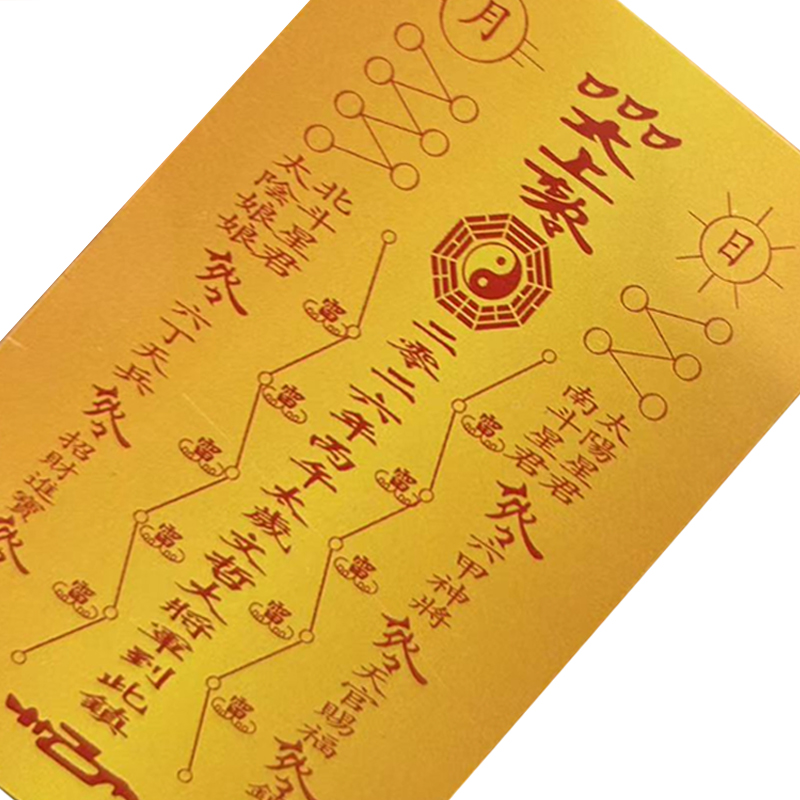 日
太陽星君
南斗星君
六甲神將
天官賜福
太上
二零二六年丙午太歲文哲大將軍到此鎮
月
北斗星君
太陰娘娘
六丁天兵
招財進寶